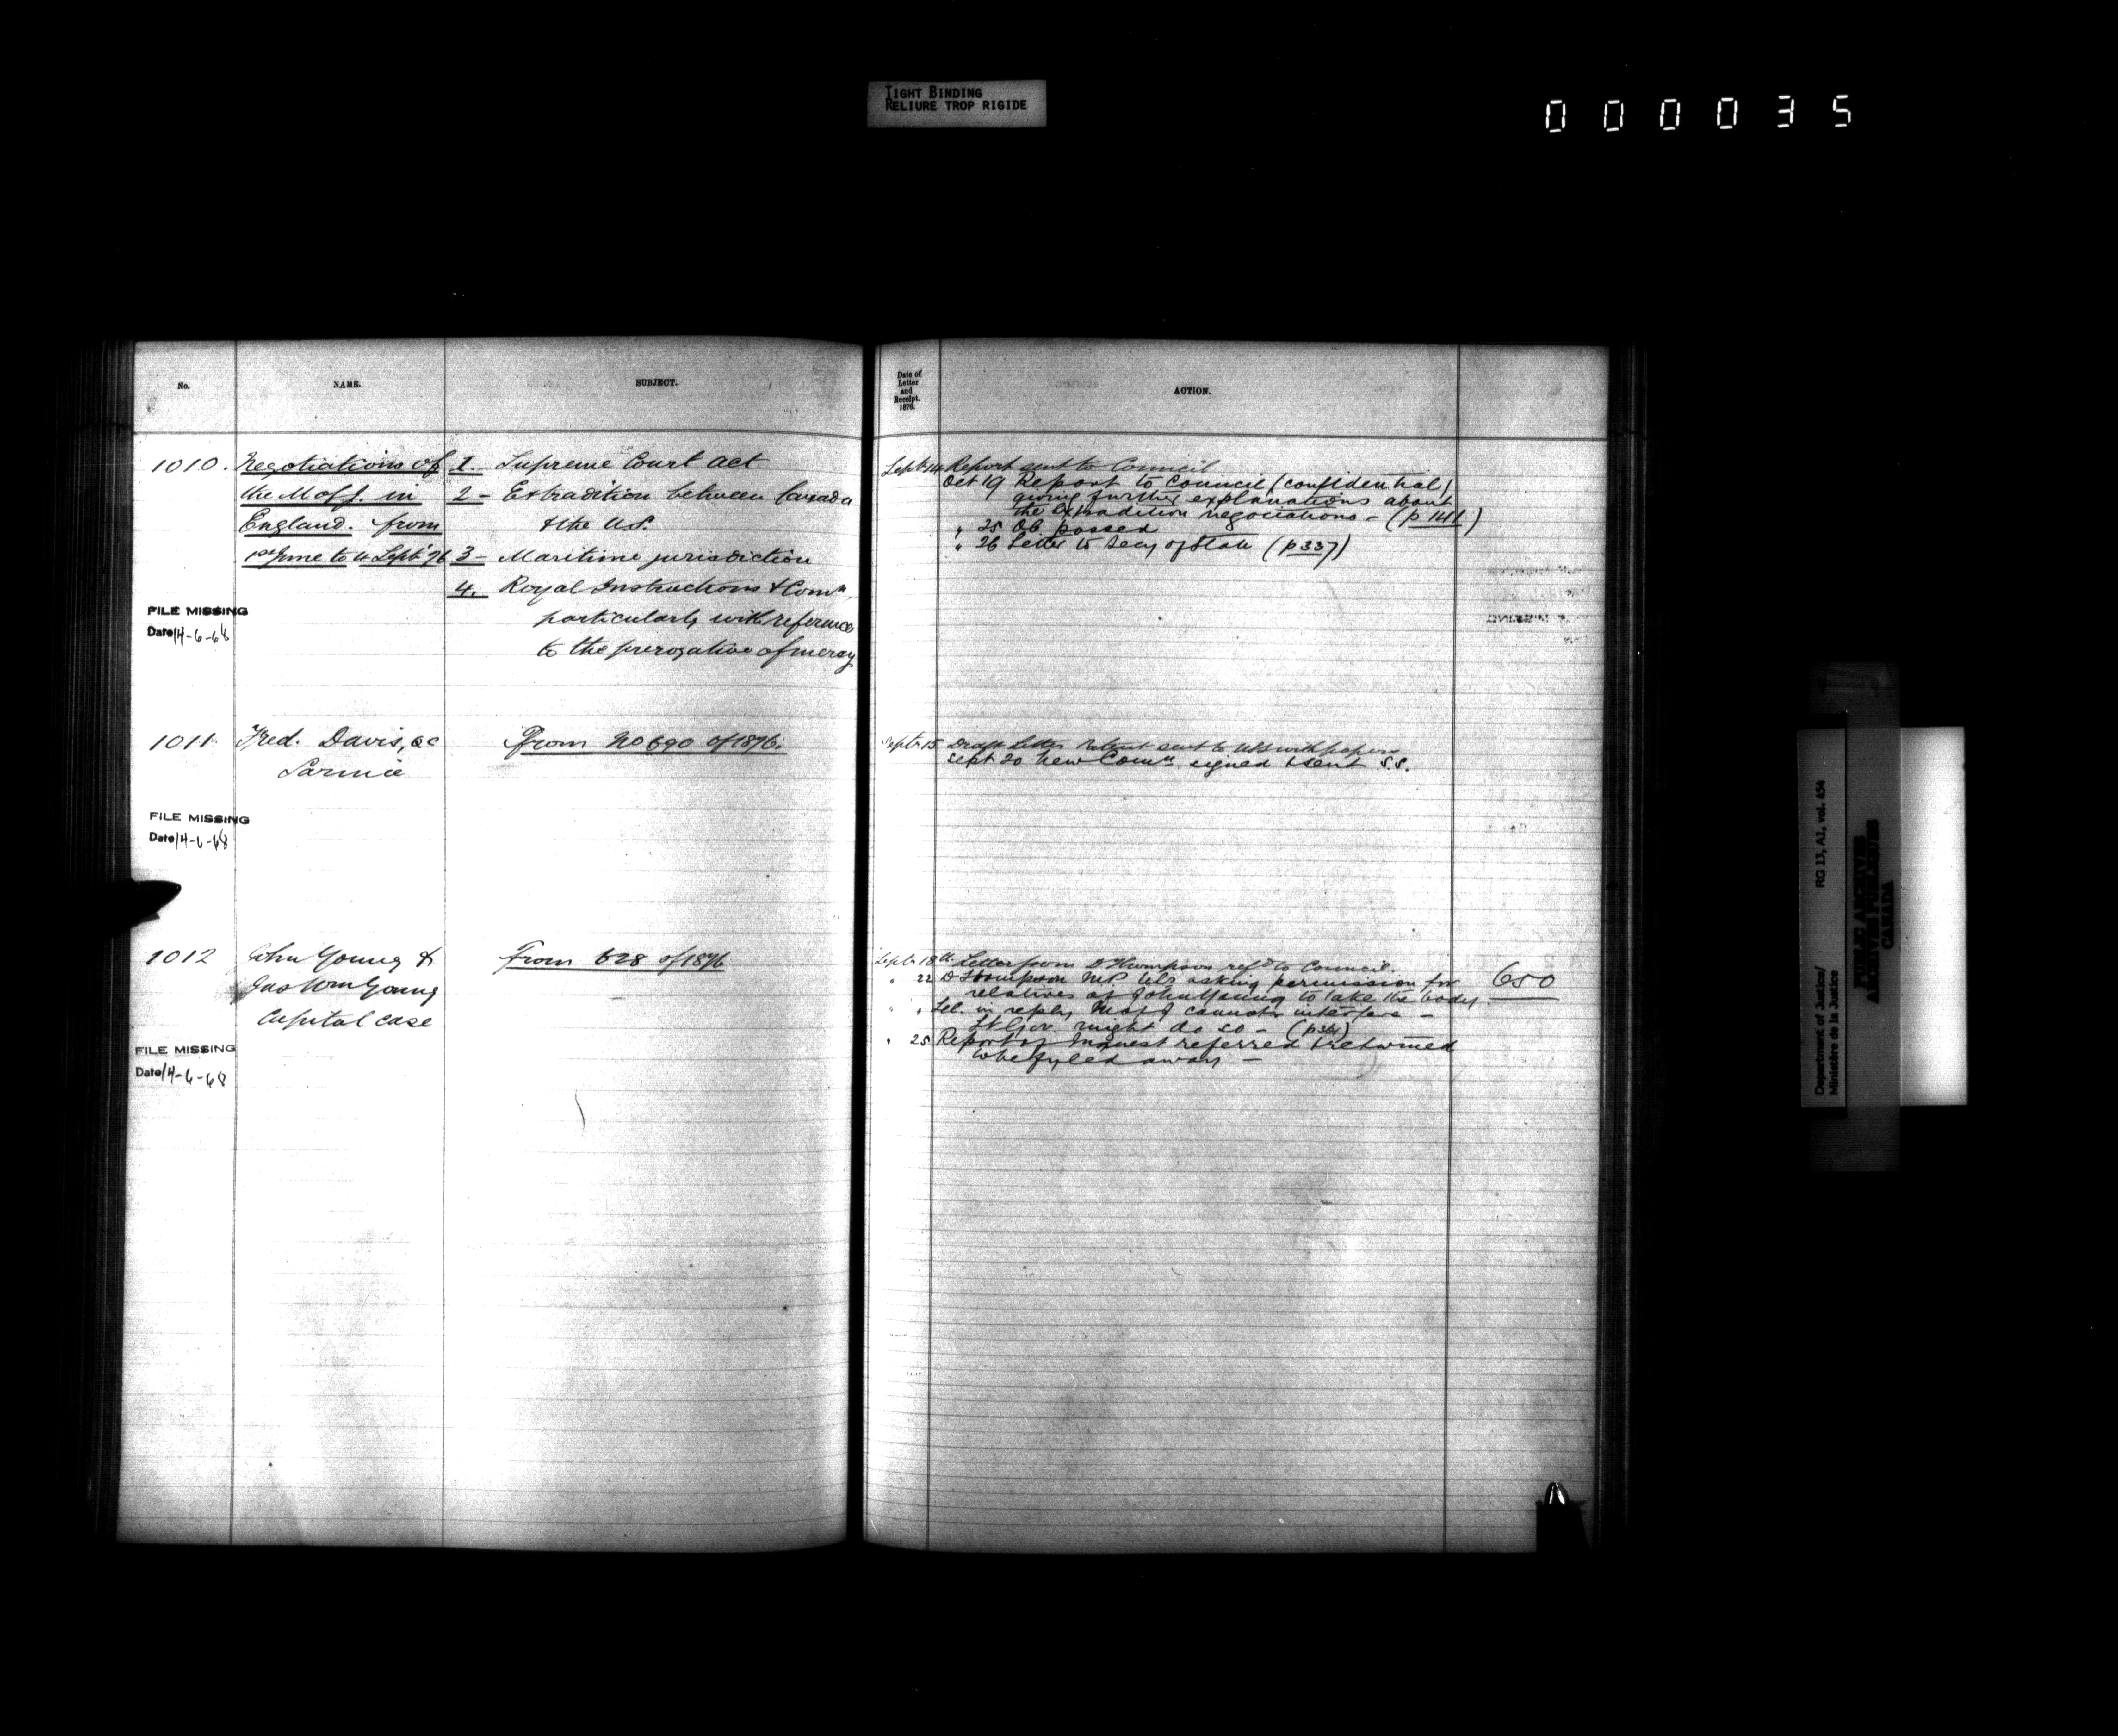 TIGHT BINDING
RELIURE TROP RIGIDE
000035
No.
NAME.
SUBJECT.
1010. Negotiations of
the M of J. in
England. from
1st June to 4 Sept '76
1. Supreme Court Act
2 - Extradition between Canada
& the U.S.
3 - Maritime jurisdiction
4. Royal Instructions & Comn.
particularly with reference
to the prerogative of mercy
FILE MISSING
Date 14-6-68
1011 Fred. Davis, QC
Sarnia
From No 690 of 1876.
FILE MISSING
Date 14-6-68
1012 John Young &
Jas Wm Young
Capital case
From 628 of 1876
FILE MISSING
Date 14-6-68
Date of
Letter
and
Receipt.
1876.
ACTION.
Sept 14 Report sent to Council
Oct 19 Report to Council (confidential)
giving further explanations about
the extradition negociations - (p 141)
" 25 OC passed
" 26 Letter to Secy of State (p 337)
Sept 15 Draft Letter Patent sent to with papers
Sept 20 New Comn. signed & sent S.S.
Sept 18th Letter from D Thompson refd to Council.
" 22 D Thompson M.P. tels asking permission for
relatives of John Young to take the body
" " Tel. in reply M of J cannot interfere -
Lt Gov. might do so - (p 361)
" 25 Report of Inquest referred & returned
to be fyled away -
650
Department of Justice/
Ministère de la Justice
RG 13, A1, vol. 454
PUBLIC ARCHIVES
ARCHIVES PUBLIQUES
CANADA